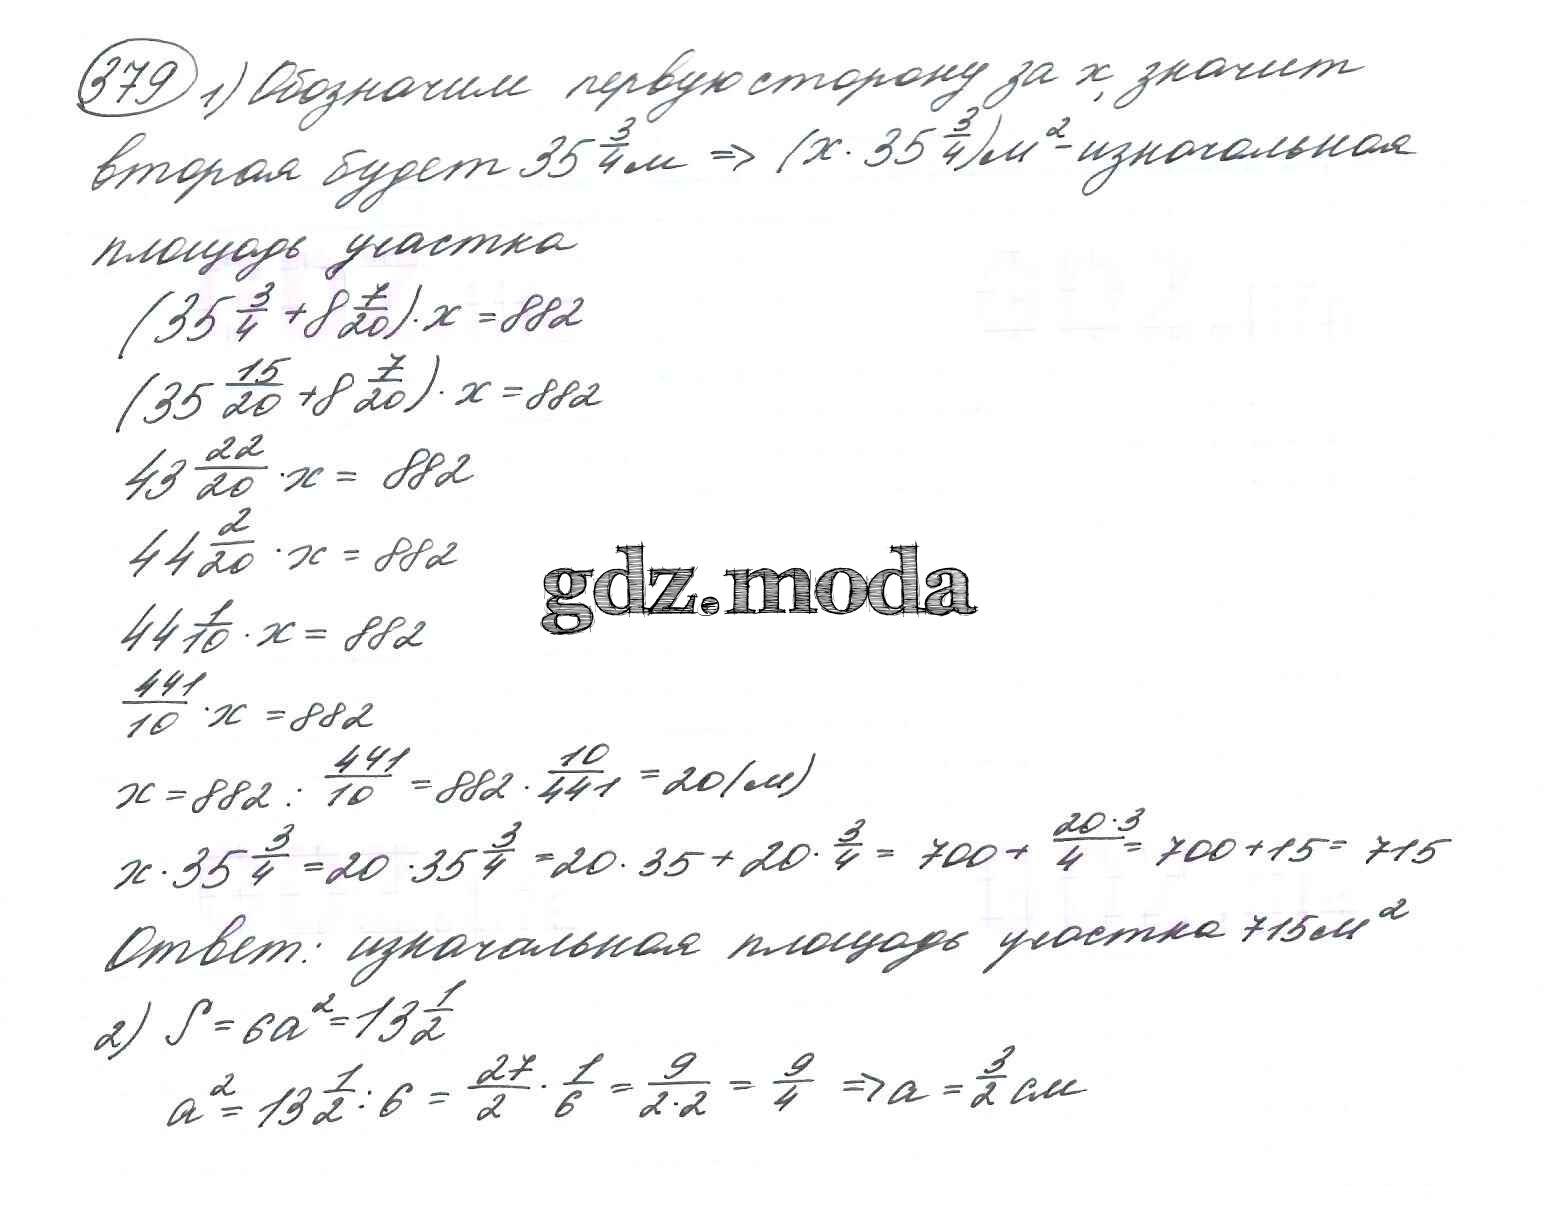 379 1) Обозначим первую сторону за x, значит
вторая будет 35 3/4 м => (x · 35 3/4) м² - изначальная
площадь участка
(35 3/4 + 8 7/20) · x = 882
(35 15/20 + 8 7/20) · x = 882
43 22/20 · x = 882
44 2/20 · x = 882
gdz.moda
44 1/10 · x = 882
441/10 · x = 882
x = 882 : 441/10 = 882 · 10/441 = 20 (м)
x · 35 3/4 = 20 · 35 3/4 = 20 · 35 + 20 · 3/4 = 700 + 20·3/4 = 700 + 15 = 715
Ответ: изначальная площадь участка 715 м²
2) S = 6a² = 13 1/2
a² = 13 1/2 : 6 = 27/2 · 1/6 = 9/2·2 = 9/4 => a = 3/2 см